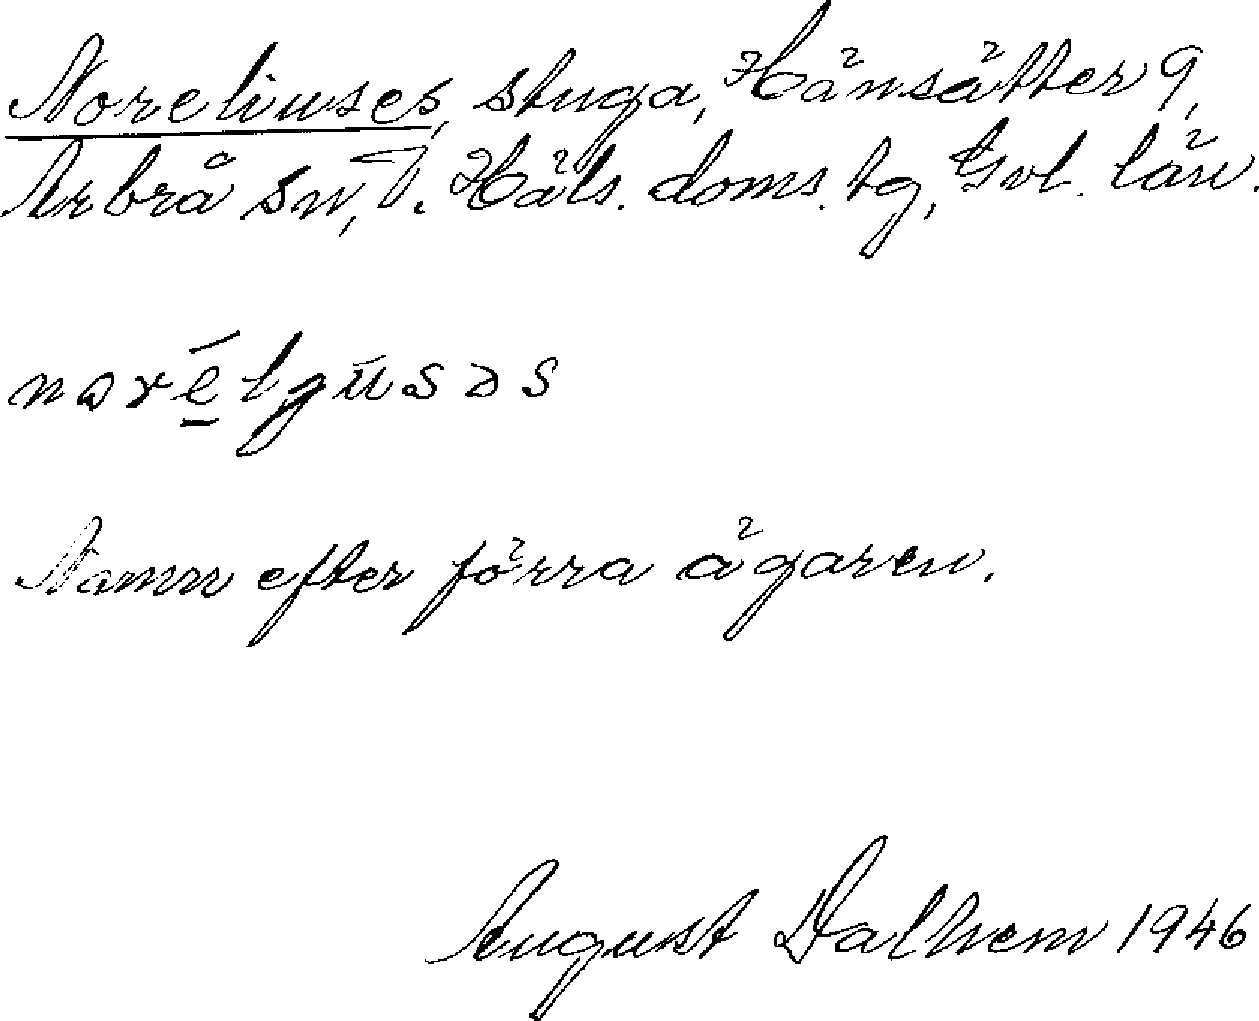 Noreliuses, stuga, Hänsätter 9,
Arbrå sn, V. Häls. doms. tg, Gvl. län.
Namn efter förra ägaren.
August Dalhem 1946